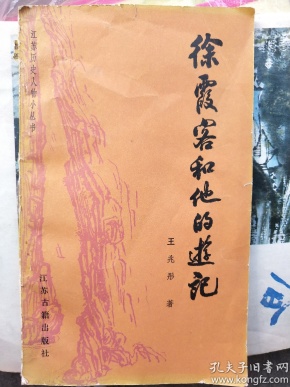 江苏历史人物小丛书
徐霞客和他的遊記
王兆彤 著
江苏古籍出版社
孔夫子旧书网